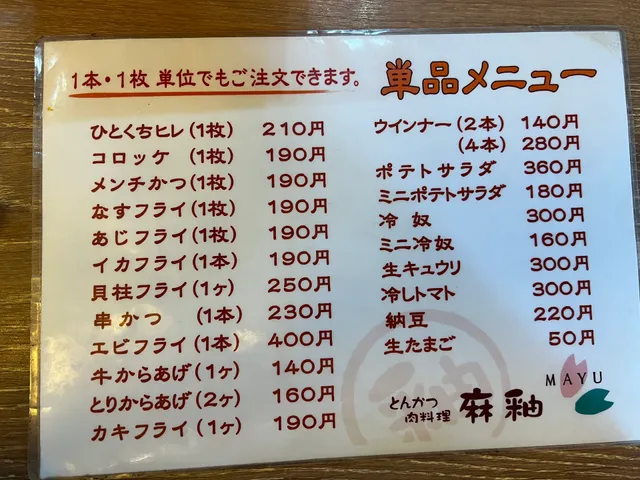 1本・1枚 単位でもご注文できます。
単品メニュー
ひとくちヒレ(1枚) 210円
コロッケ (1枚) 190円
メンチかつ(1枚) 190円
なすフライ(1枚) 190円
あじフライ(1枚) 190円
イカフライ(1本) 190円
貝柱フライ(1ヶ) 250円
串かつ (1本) 230円
エビフライ(1本) 400円
牛からあげ(1ヶ) 140円
とりからあげ(2ヶ) 160円
カキフライ(1ヶ) 190円
ウインナー(2本) 140円
(4本) 280円
ポテトサラダ 360円
ミニポテトサラダ 180円
冷奴 300円
ミニ冷奴 160円
生キュウリ 300円
冷しトマト 300円
納豆 220円
生たまご 50円
MAYU
とんかつ
肉料理
麻釉